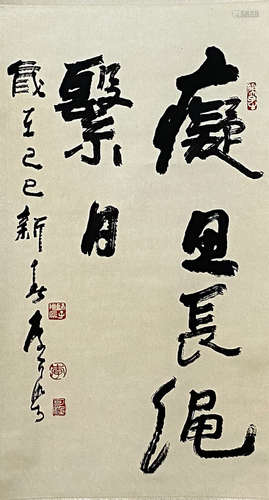 癡思長绳
繫月
歲在己巳新春